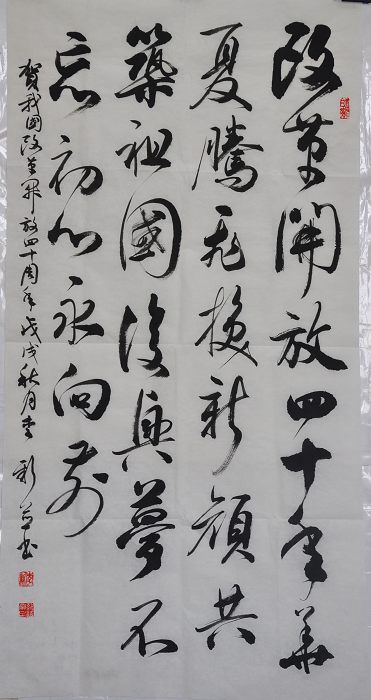 改革開放四十年華
夏騰飛換新顔共
築祖國復興夢不
忘初心永向前
賀我國改革開放四十周年戊戌秋月李新草书